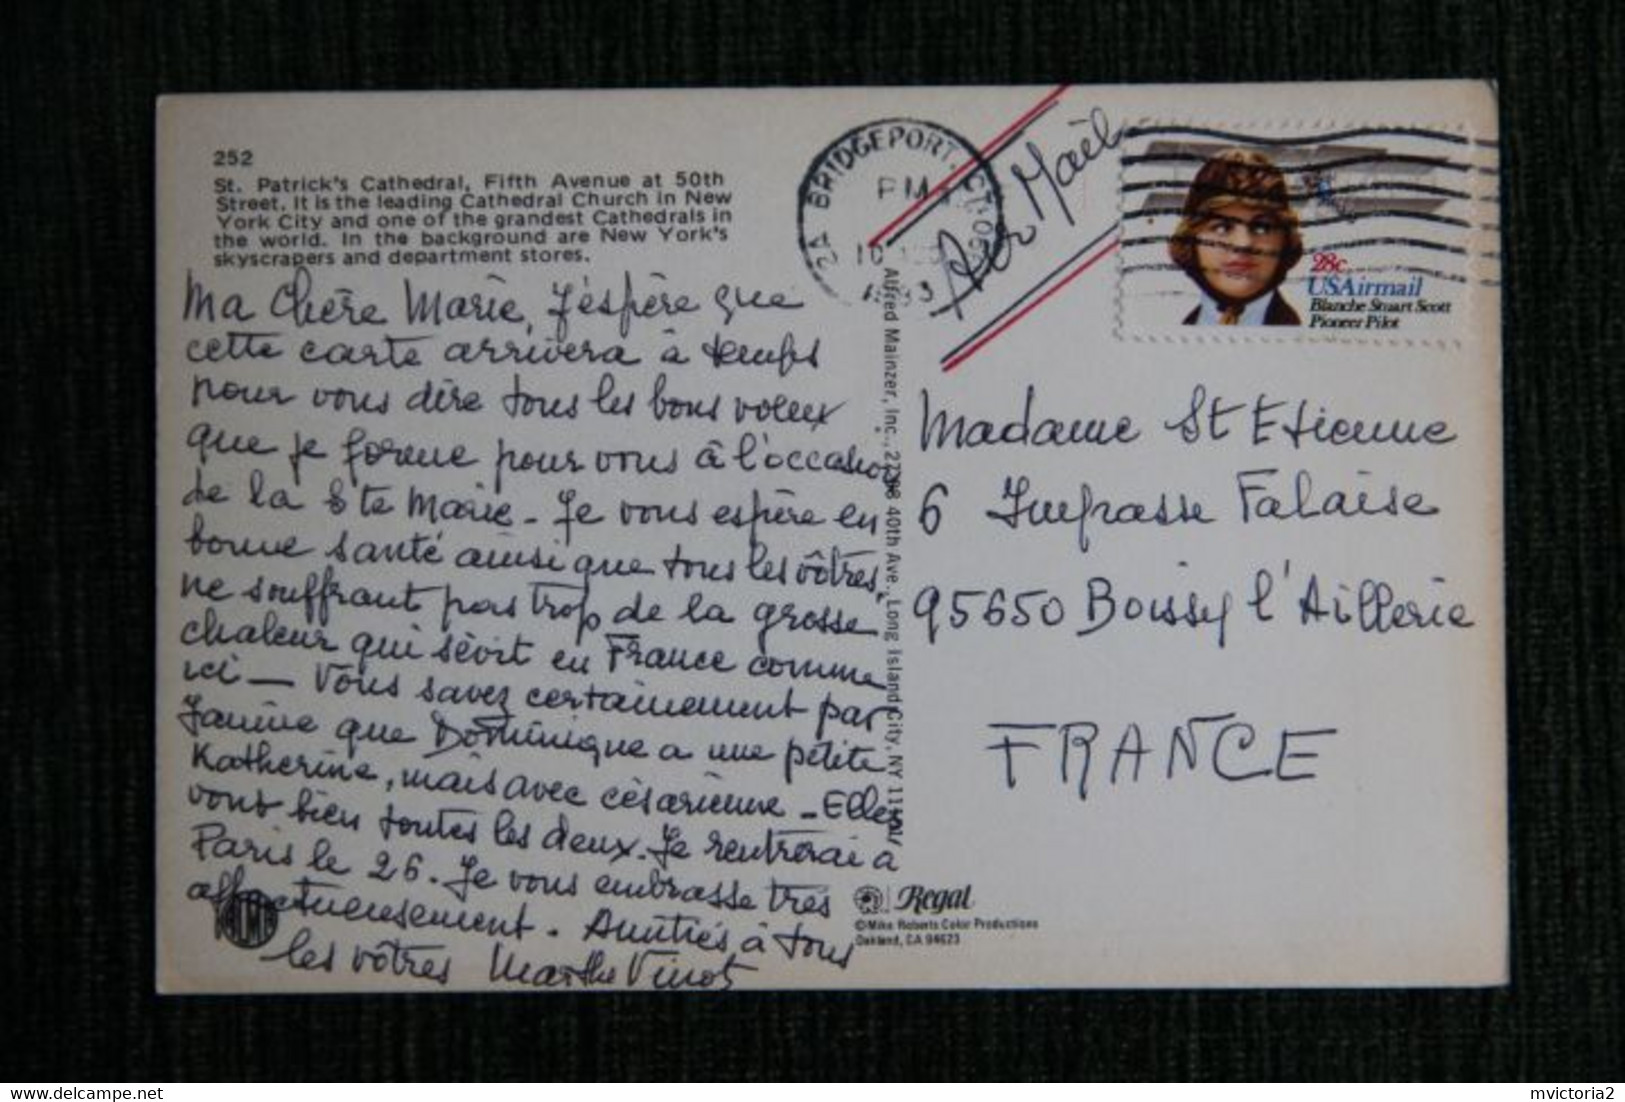 252
St. Patrick's Cathedral, Fifth Avenue at 50th
Street. It is the leading Cathedral Church in New
York City and one of the grandest Cathedrals in
the world. In the background are New York's
skyscrapers and department stores.
Ma Chère Marie, J'éspère que
cette carte arrivera à temps
pour vous dire tous les bons voeux
que je forme pour vous à l'occasion
de la Ste Marie - Je vous espère en
bonne santé ainsi que tous les vôtres,
ne souffrant pas trop de la grosse
chaleur qui sévit en France comme
ici - Vous savez certainement par
Janine que Dominique a une petite
Katherine, mais avec césarienne - Elles
vont bien toutes les deux. Je rentrerai à
Paris le 26. Je vous embrasse très
affectueusement. Amitiés à tous
les vôtres Marthe Vinot
Alfred Mainzer, Inc., 40th Ave., Long Island City, NY
BRIDGEPORT, CT
PM
10
1983
Aer Maël
28c
USAirmail
Blanche Stuart Scott
Pioneer Pilot
Madame St Etienne
6 Impasse Falaise
95650 Boissy l'Aillerie
FRANCE
Regal
©Mike Roberts Color Productions
Oakland, CA 94623
mvictoria2